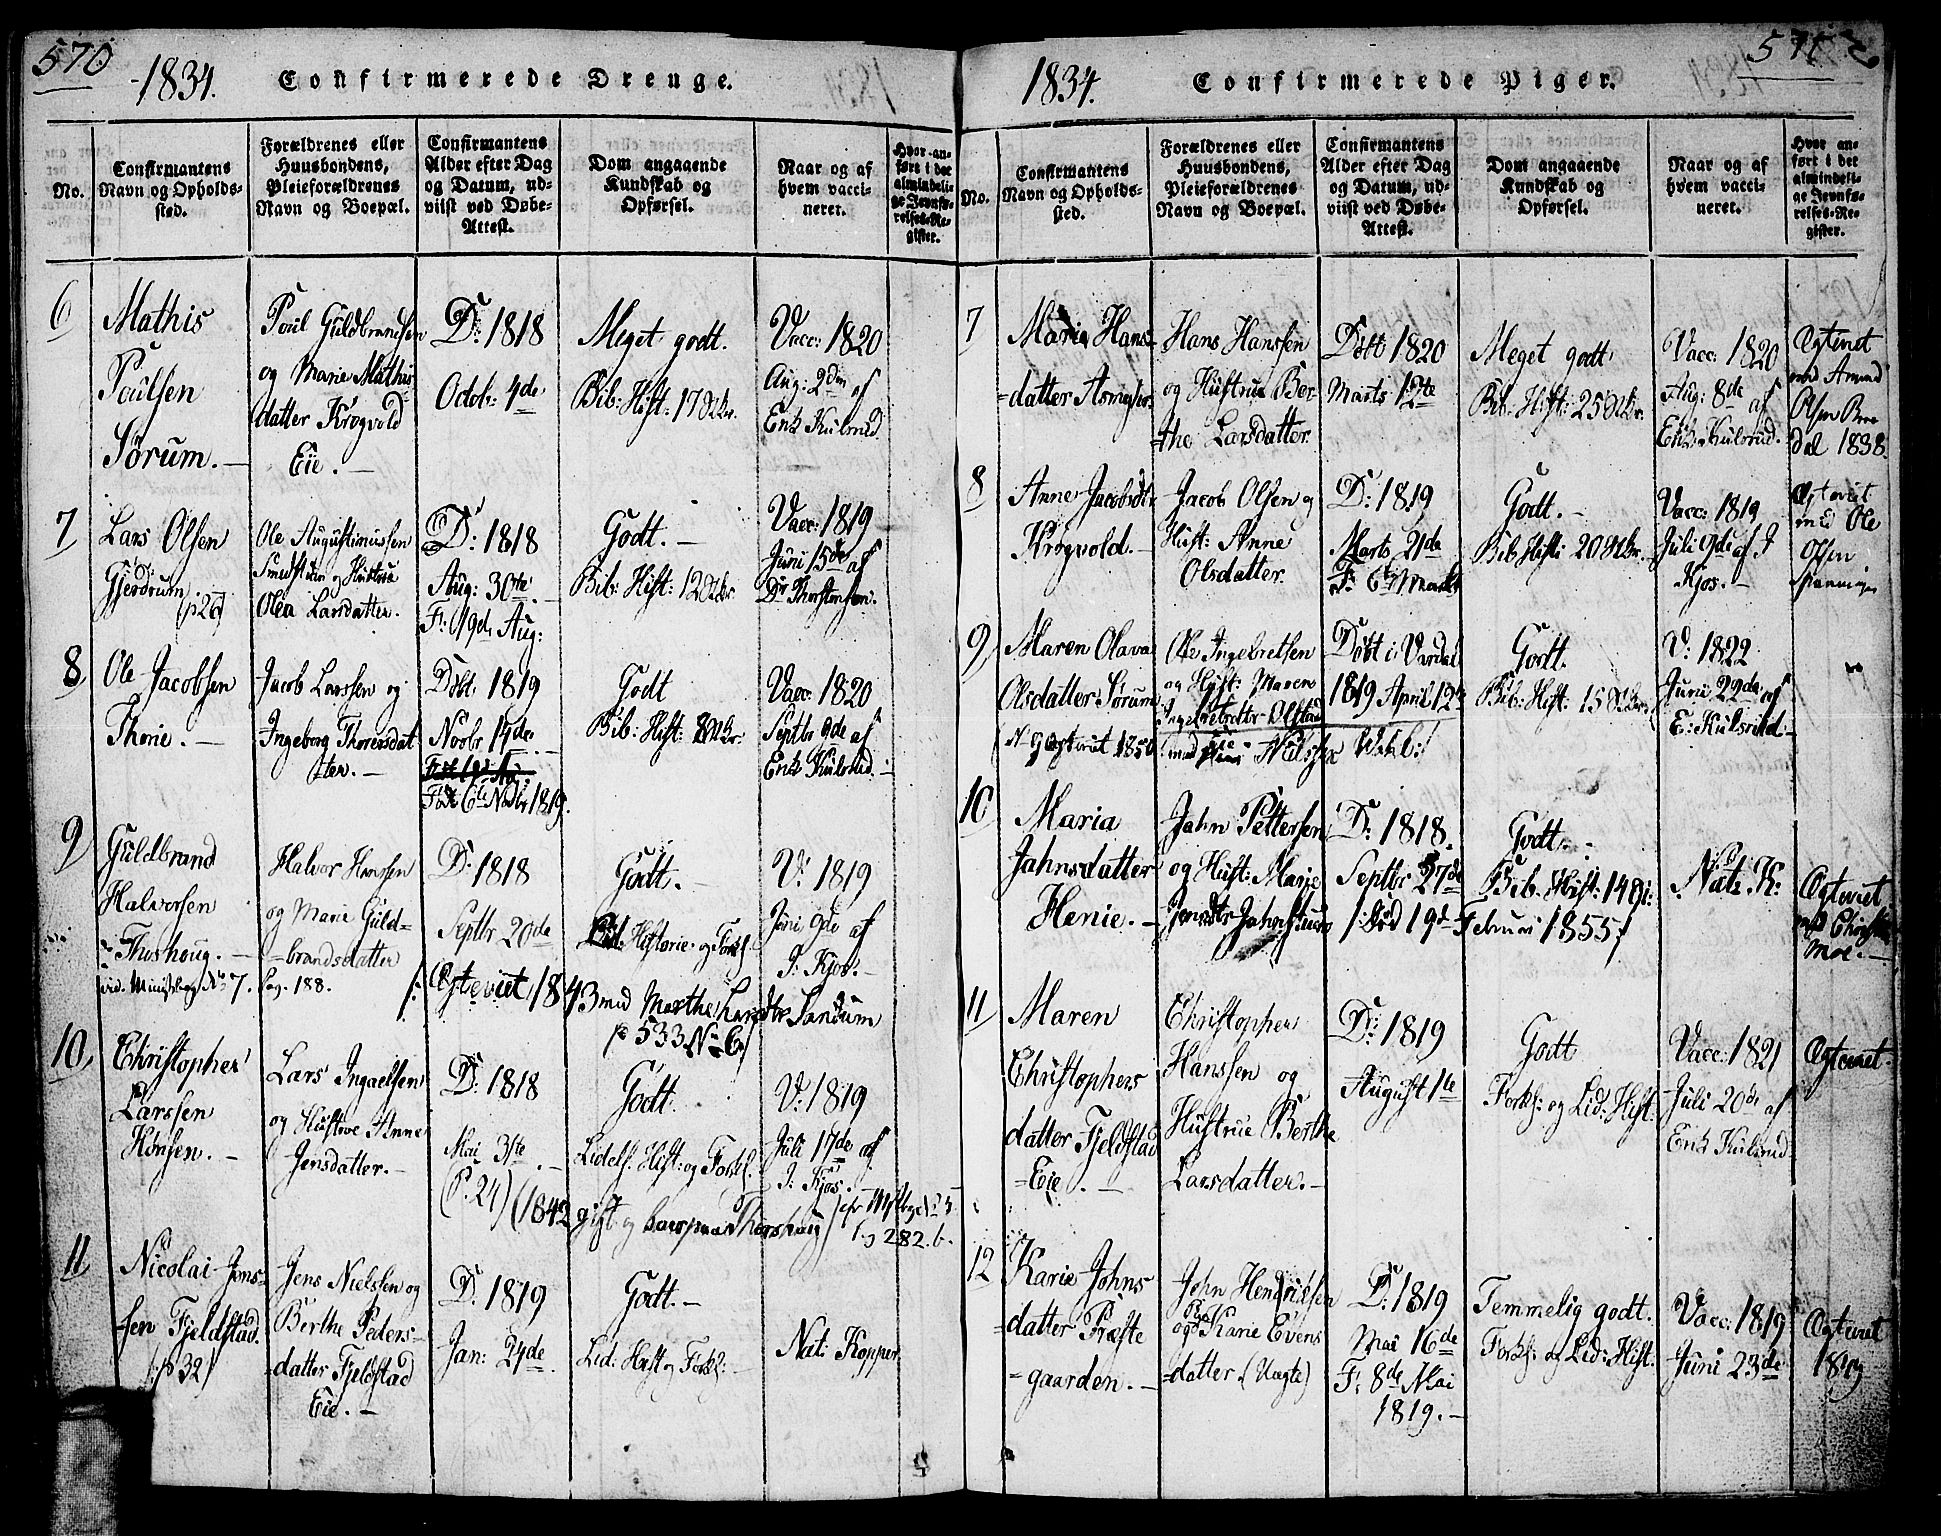 570
1834. Confirmerede Drenge.
No.
Confirmantens Navn og Opholds-sted.
Forældrenes eller Huusbondens, Pleieforældrenes Navn og Boepæl.
Confirmantens Alder efter Dag og Datum, udviist ved Døbe-Attest.
Dom angaaende Kundskab og Opførsel.
Naar og af hvem vaccineret.
Hvor anført i det almindelige Jevnførelses-Register.
6
Mathis
Poulsen
Sørum.
Poul Guldbrandsen
og Marie Mathis
datter Krogvold
Eie.
D: 1818
Octobr: 4de
Meget godt.
Bib: Hist:
Vacc: 1820
Aug: 2den af
Erik Kulsrud
7
Lars Olsen
Gjerdrum
(p 26)
Ole Augustinussen
og Hustrue
Olea Larsdatter.
D: 1818
Aug: 30te
F: 19de Aug:
Godt.
Bib: Hist:
Vacc: 1819
Juni 15de af
Dr Thorstensen.
8
Ole Jacobsen
Thorie.
Jacob Larssen og
Ingeborg Thoresdat
ter.
Døbt 1819
Novbr 14de
Født 6te Novbr 1819.
Godt
Bib: Hist:
Vacc: 1820
Septbr 9de af
Erik Kulsrud.
9
Guldbrand
Halvorsen
Thoshoug.
vid. Ministbog No 7. Pag. 188.
Halvor Hanssen
og Marie Guld-
brandsdatter
D: 1818
Septbr 20de
Godt.
Lid: Historie og Forkl:
V: 1819
Juni 9de af
I: Kjos.
Egteviet 1843 med Marthe Larsdtr Sandum
p 533 No 6
10
Christopher
Larssen
Hønsen.
Lars Ingaelsen
og Hustroe Anne
Jensdatter.
D: 1818
Mai 31te
(P. 24)
Godt.
Lidels: Hist: og Forkl:
V: 1819
Juli 17de af
I: Kjos.
(1842 gift og
282.b.
11
Nicolai Jens-
sen Fjeldstad.
(p 32)
Jens Nielsen og
Berthe Peders-
datter Fjeldstad
Eie.
D. 1819
Jan: 24de
Godt.
Lid: Hist og Forkl:
Nat: Kopper
1834. Confirmerede Piger.
No.
Confirmantens Navn og Opholds-sted.
Forældrenes eller Huusbondens, Pleieforældrenes Navn og Boepæl.
Confirmantens Alder efter Dag og Datum, udviist ved Døbe-Attest.
Dom angaaende Kundskab og Opførsel.
Naar og af hvem vaccineret.
Hvor anført i det almindelige Jevnførelses-Register.
7
Maria Hans-
datter
Hans Hanssen
og Hustrue Ber-
the Larsdatter.
Døbt 1820
Marts 12te
Meget godt
Bib: Hist:
Vacc: 1820
Aug: 8de af
Erik Kulsrud.
Egteviet
med Amund
Olsen
1838.
8
Anne Jacobsdtr
Krogvold.
Jacob Olsen og
Hust: Anne
Olsdatter.
D: 1819
Marts 21de
F: 6te Marts
Godt.
Bib Hist:
Vacc: 1819
Juli 9de af I
Kjos.
Egteviet
med Ole
Olsen
9
Maren Olava
Olsdatter Sørum
Ole Ingebretsen
og Hust: Maren
Ingebretsdtr Ølstad
Eie
Døbt i Vardal
1819 April 12te
Godt.
Bib: Hist:
V: 1822
Juni 22de af
E: Kulsrud.
Egteviet 1850 med
10
Maria
Jahnsdatter
Henie.
Jahn Pettersen
og Hust: Marie
D: 1818.
Septbr 27de
Godt.
Bib. Hist:
Nat: K:
Død 19de Februar 1855
Egteviet
med
Moe.
11
Maren
Christophers
datter Fjeldstad
Eie.
Christopher
Hanssen og
Hustrue Berthe
Larsdatter.
D: 1819
August 1te
Godt
Forkl: og Lid: Hist.
Vacc: 1821
Juli 20de af
Erik Kulsrud
Egteviet
12
Karie Johns
datter Præste
gaarden.
John Hendriksen
og Karie Evens
datter (Uægte)
D: 1819
Mai 16de
F: 8de Mai
1819.
Temmelig godt.
Forkl: og Lid: Hist.
Vacc: 1819
Juni 23de
Egteviet